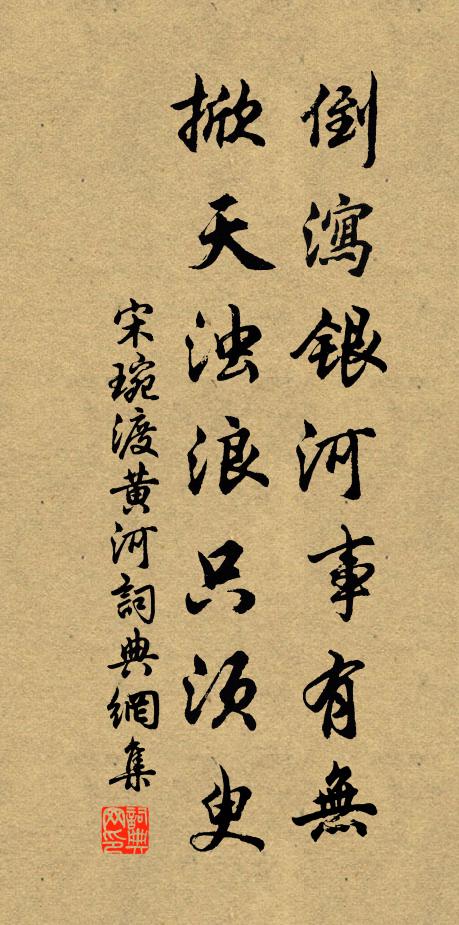 倒瀉銀河事有無
掀天浊浪只須臾
宋琬渡黄河詞典網集
詞典网印